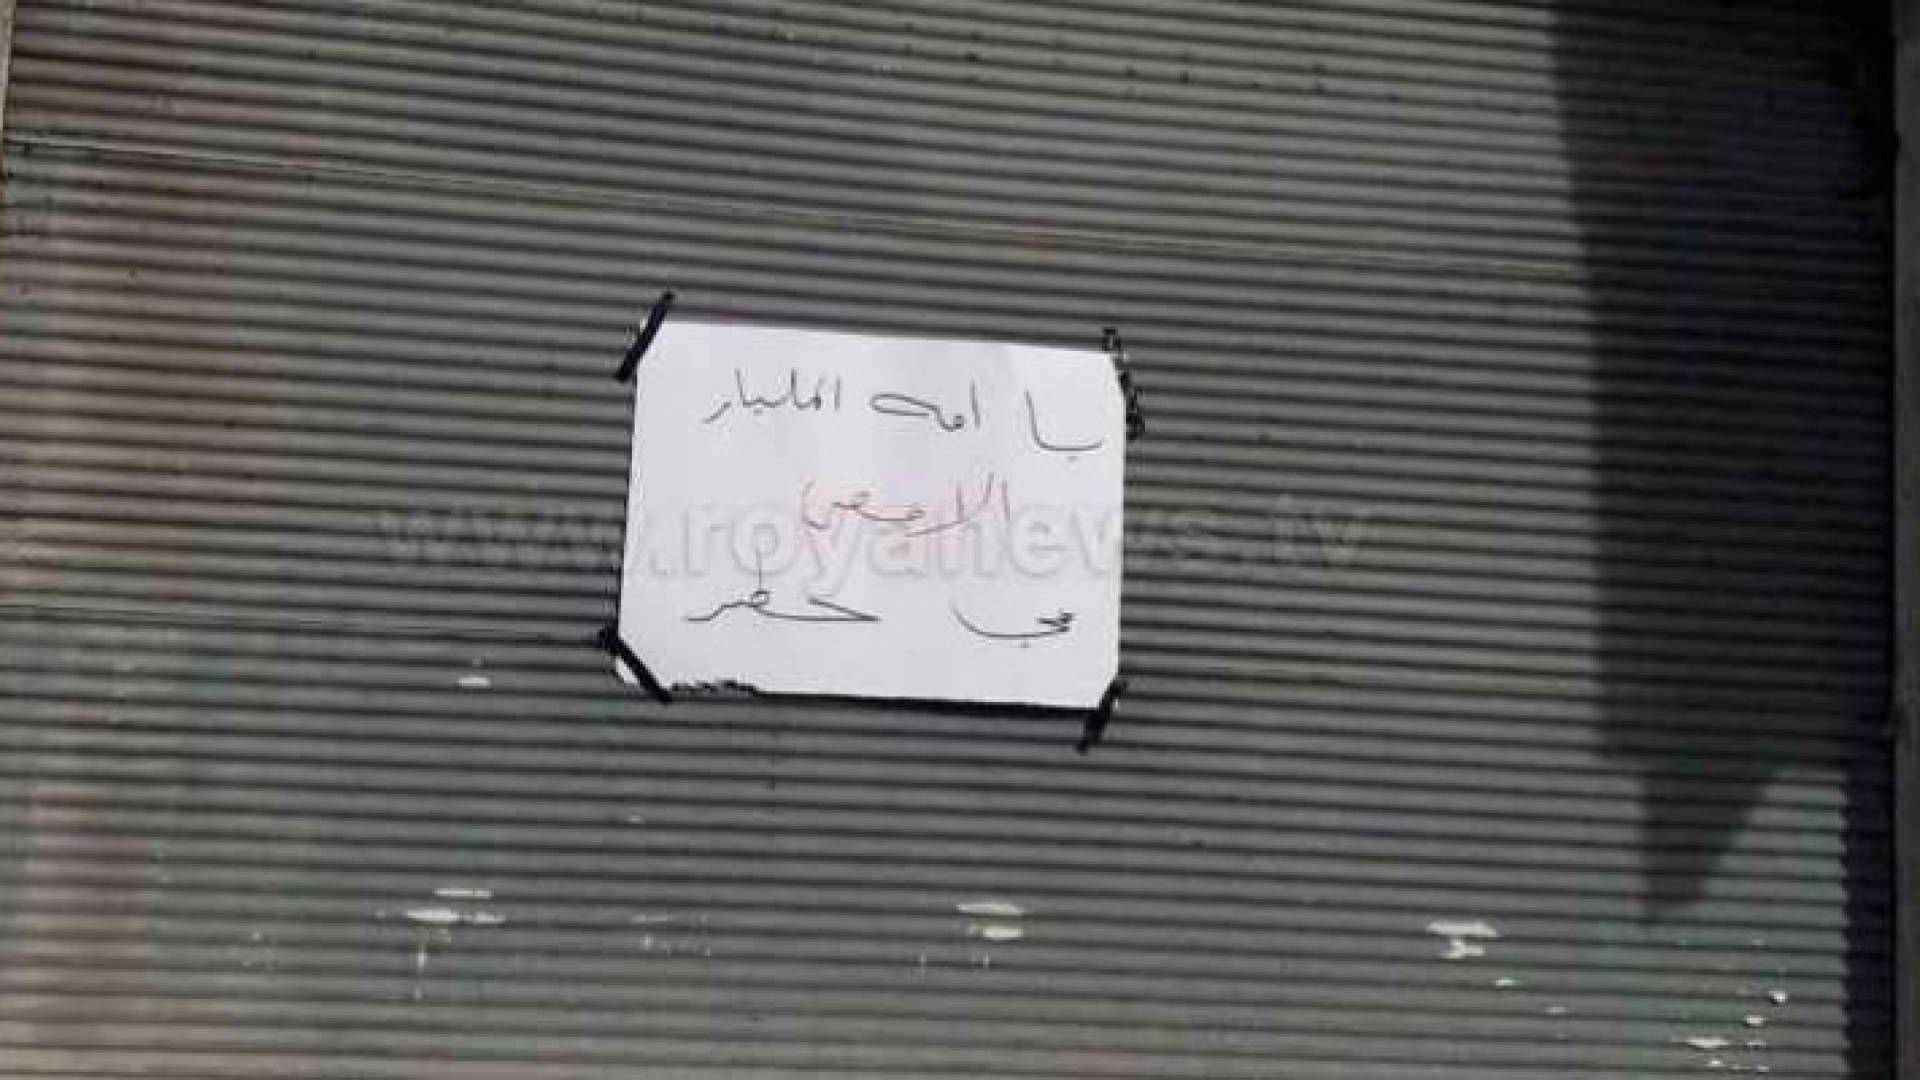 يا امه المليار
الاقصى
في خطر
www.royanews.tv